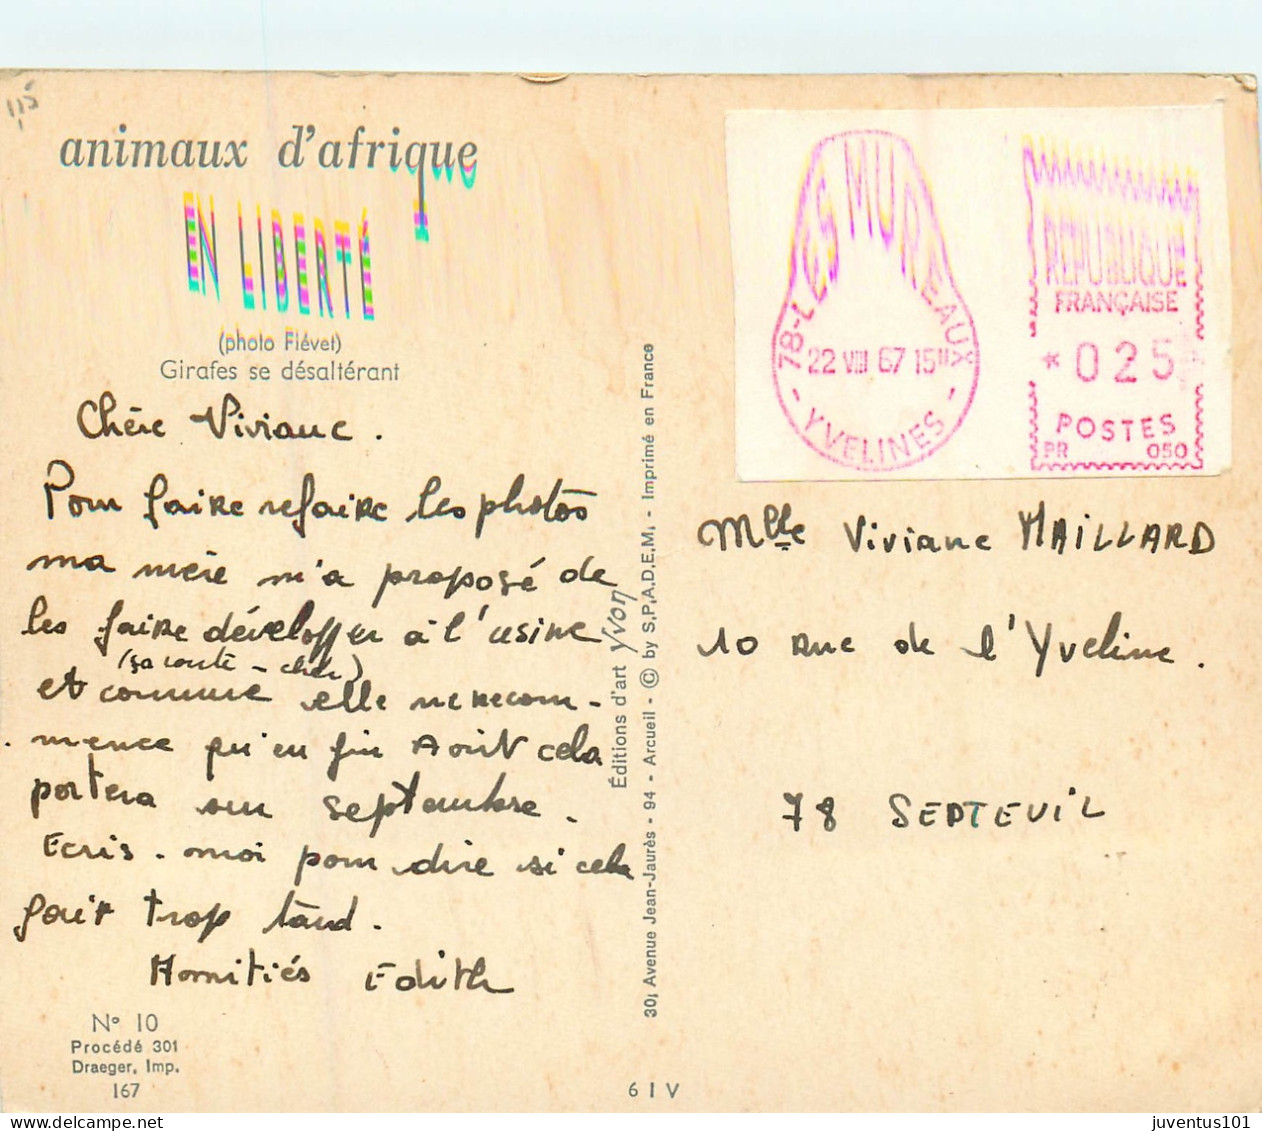 115
animaux d'afrique
EN LIBERTÉ
(photo Fiévet)
Girafes se désaltérant
Chère Viviane.
Pour faire refaire les photos
ma mère m'a proposé de
les faire développer à l'usine
(sa coute - cher)
et comme elle ne recom-
mence qu'en fin Août cela
portera sur septembre.
Ecris-moi pour dire si cela
fait trop tard.
Edith
N° 10
Procédé 301
Draeger, Imp.
167
6 I V
Éditions d'art Yvon
30, Avenue Jean-Jaurès - 94 - Arcueil - © by S.P.A.D.E.M. - Imprimé en France
78-LES MUREAUX
22 VIII 67 15H
- YVELINES -
REPUBLIQUE
FRANÇAISE
* 025
POSTES
PR 050
Mlle Viviane MAILLARD
10 rue de l'Yveline.
78 SEPTEUIL
juventus101